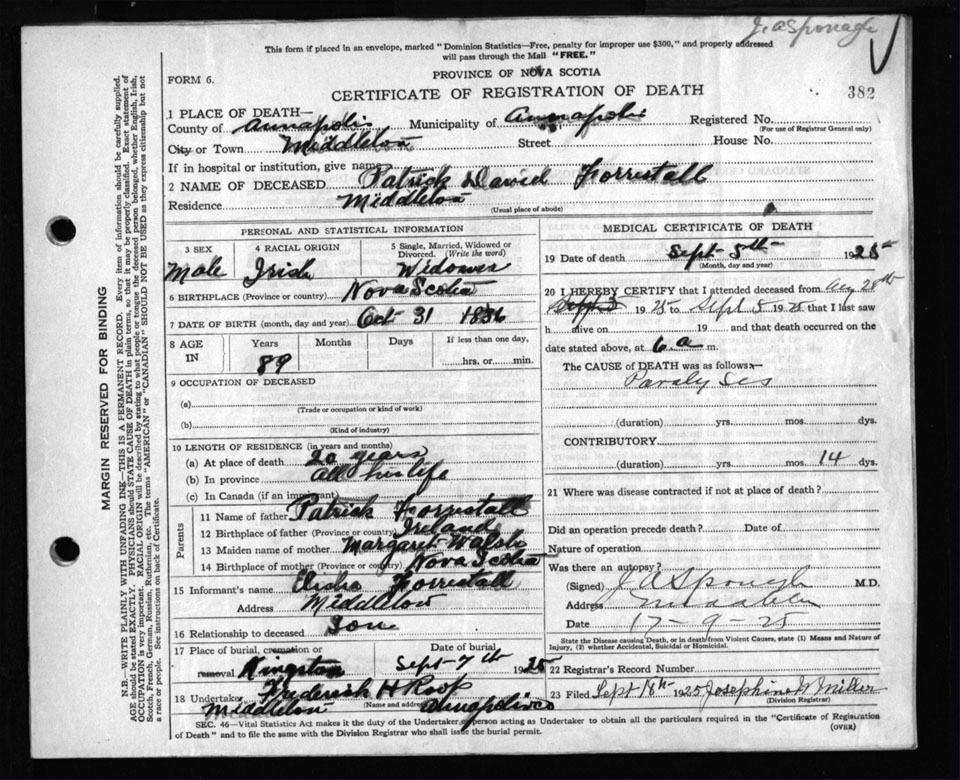 J. A Sponagle
This form if placed in an envelope, marked "Dominion Statistics—Free, penalty for improper use $300," and properly addressed
will pass through the Mail "FREE."
PROVINCE OF NOVA SCOTIA
FORM 6.
CERTIFICATE OF REGISTRATION OF DEATH
382
1 PLACE OF DEATH—
County of Annapolis Municipality of Annapolis Registered No.
(For use of Registrar General only)
City or Town Middleton Street House No.
If in hospital or institution, give name
2 NAME OF DECEASED Patrick David Forrestall
Residence Middleton
(Usual place of abode)
PERSONAL AND STATISTICAL INFORMATION
3 SEX 4 RACIAL ORIGIN 5 Single, Married, Widowed or
Divorced. (Write the word)
Male Irish Widower
6 BIRTHPLACE (Province or country) Nova Scotia
7 DATE OF BIRTH (month, day and year) Oct 31 1836
8 AGE IN Years Months Days If less than one day,
89 hrs. or min.
9 OCCUPATION OF DECEASED
(a)
(Trade or occupation or kind of work)
(b)
(Kind of industry)
10 LENGTH OF RESIDENCE (in years and months)
(a) At place of death 20 years
(b) In province all his life
(c) In Canada (if an immigrant)
Parents
11 Name of father Patrick Forrestall
12 Birthplace of father (Province or country) Ireland
13 Maiden name of mother Margaret Walsh
14 Birthplace of mother (Province or country) Nova Scotia
15 Informant's name Elisha Forrestall
Address Middleton
16 Relationship to deceased Son
17 Place of burial, cremation or Date of burial
removal Kingston Sept 7th 1925
18 Undertaker Frederick H Roop
(Name and address)
Middleton Annapolis co
MEDICAL CERTIFICATE OF DEATH
19 Date of death Sept 5th 1925
(Month, day and year)
20 I HEREBY CERTIFY that I attended deceased from Aug 28th
1925 to Sept 5 1925 that I last saw
h alive on 19 and that death occurred on
date stated above, at 6 a m.
The CAUSE of DEATH was as follows:—
Paralyses
(duration) yrs. mos. dys.
CONTRIBUTORY
(duration) yrs. mos. 14 dys.
21 Where was disease contracted if not at place of death?
Did an operation precede death? Date of
Nature of operation
Was there an autopsy?
(Signed) J A Sponagle M.D.
Address Middleton
Date 17-9-25
State the Disease causing Death, or in death from Violent Causes, state (1) Means and Nature of
Injury, (2) whether Accidental, Suicidal or Homicidal.
22 Registrar's Record Number
23 Filed Sept 18th 1925 Josephine W Miller
(Division Registrar)
SEC. 46—Vital Statistics Act makes it the duty of the Undertaker or person acting as Undertaker to obtain all the particulars required in the "Certificate of Registration
of Death" and to file the same with the Division Registrar who shall issue the burial permit.
(OVER)
MARGIN RESERVED FOR BINDING
N.B. WRITE PLAINLY WITH UNFADING INK—THIS IS A PERMANENT RECORD. Every item of information should be carefully supplied.
AGE should be stated EXACTLY. PHYSICIANS should STATE CAUSE OF DEATH in plain terms, so that it may be properly classified. Exact statement of
OCCUPATION is very important. RACIAL ORIGIN will be described by stating to what people or tongue the deceased person belonged, whether English, Irish,
Scotch, French, German, Russian, Ruthenian, etc. The terms "AMERICAN" or "CANADIAN" SHOULD NOT BE USED as they express citizenship but not
a race or people. See instructions on back of Certificate.